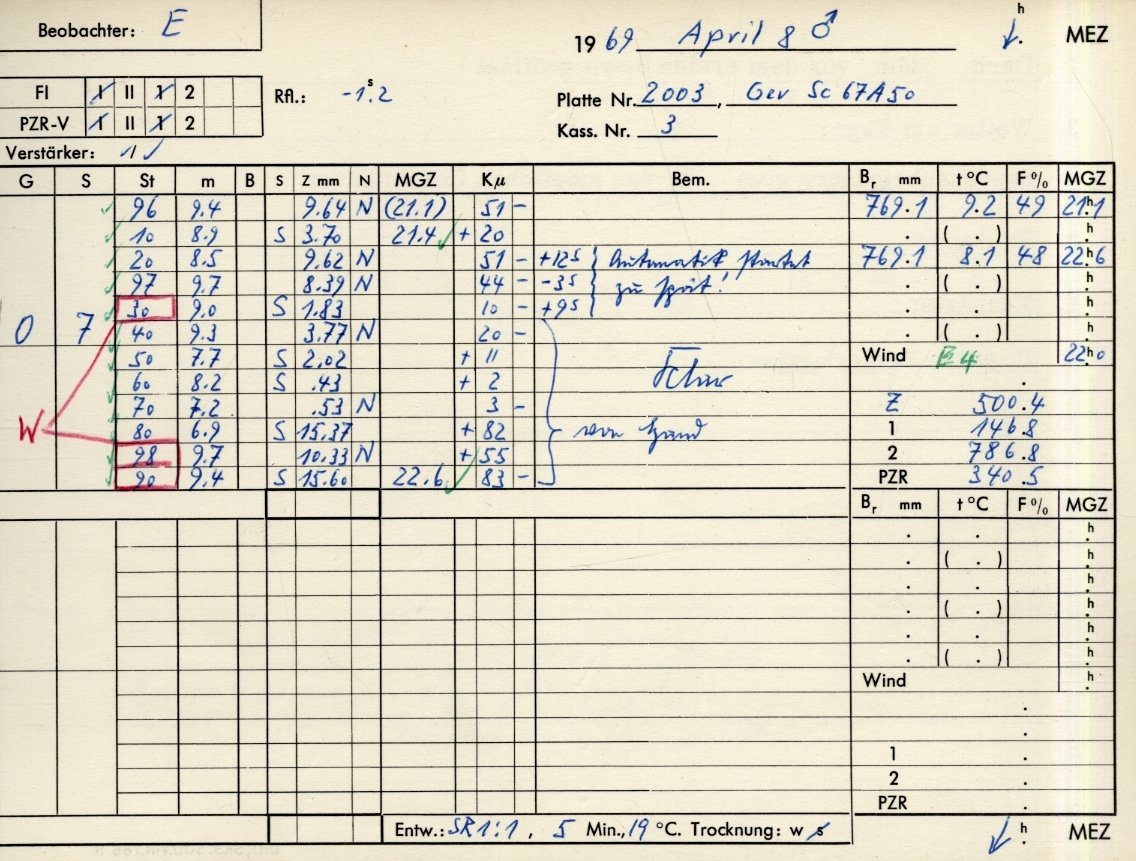 Beobachter: E
1969 April 8 ♂ h . MEZ
FI I II 1 2 Rfl.: -1ˢ.2
Platte Nr. 2003, Gev Sc 67A50
PZR-V I II 1 2
Kass. Nr. 3
Verstärker: 1/
G S St m B S Z mm N MGZ Kμ Bem. Bᵣ mm t °C F % MGZ
96 9.4 9.64 N (21.1) 51 - 769.1 9.2 49 21ʰ.1
10 8.9 S 3.70 21.4 + 20 . ( . ) h .
20 8.5 9.62 N 51 - +12ˢ Automatik startet 769.1 8.1 48 22ʰ.6
97 9.7 8.39 N 44 - -3ˢ zu spät! . ( . ) h .
30 9.0 S 1.83 10 - +9ˢ . . h .
0 7 40 9.3 3.77 N 20 - . ( . ) h .
50 7.7 S 2.02 + 11 Wind E 4 22ʰ.0
60 8.2 S .43 + 2 .
70 7.2 .53 N 3 - Z 500.4
W 80 6.9 S 15.37 + 82 von Hand 1 146.8
98 9.7 10.33 N + 55 2 786.8
90 9.4 S 15.60 22.6 83 - PZR 340.5
Bᵣ mm t °C F % MGZ
. . h .
. ( . ) h .
. . h .
. ( . ) h .
. . h .
. ( . ) h .
Wind h .
.
.
1 .
2 .
PZR .
Entw.: SR 1:1, 5 Min., 19 °C. Trocknung: w s h . MEZ